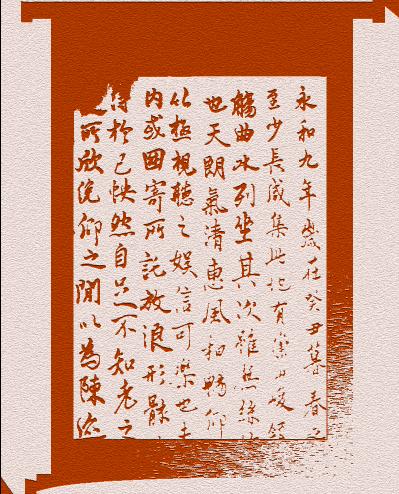 永和九年歲在癸丑暮春之
至少長咸集此地有崇山峻領
觴曲水列坐其次雖無絲
也天朗氣清惠風和暢仰
以極視聽之娛信可樂也夫
內或因寄所託放浪形骸
得於己怏然自足不知老之
所欣俛仰之閒以為陳迹